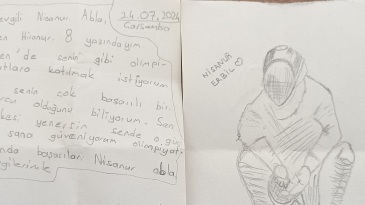 evgili Nisanur Abla,
24.07.2024
Çarşamba
en Hiranur. 8 yaşındayım
en'de senin gibi olimpi-
atlara katılmak istiyorum
senin çok başarılı bir
olduğunu biliyorum. Sen
kesi yenersin sende o güç
sana güveniyorum olimpiyat
nda başarılar Nisanur abla,
gilerimle
NİSANUR
ERBİL